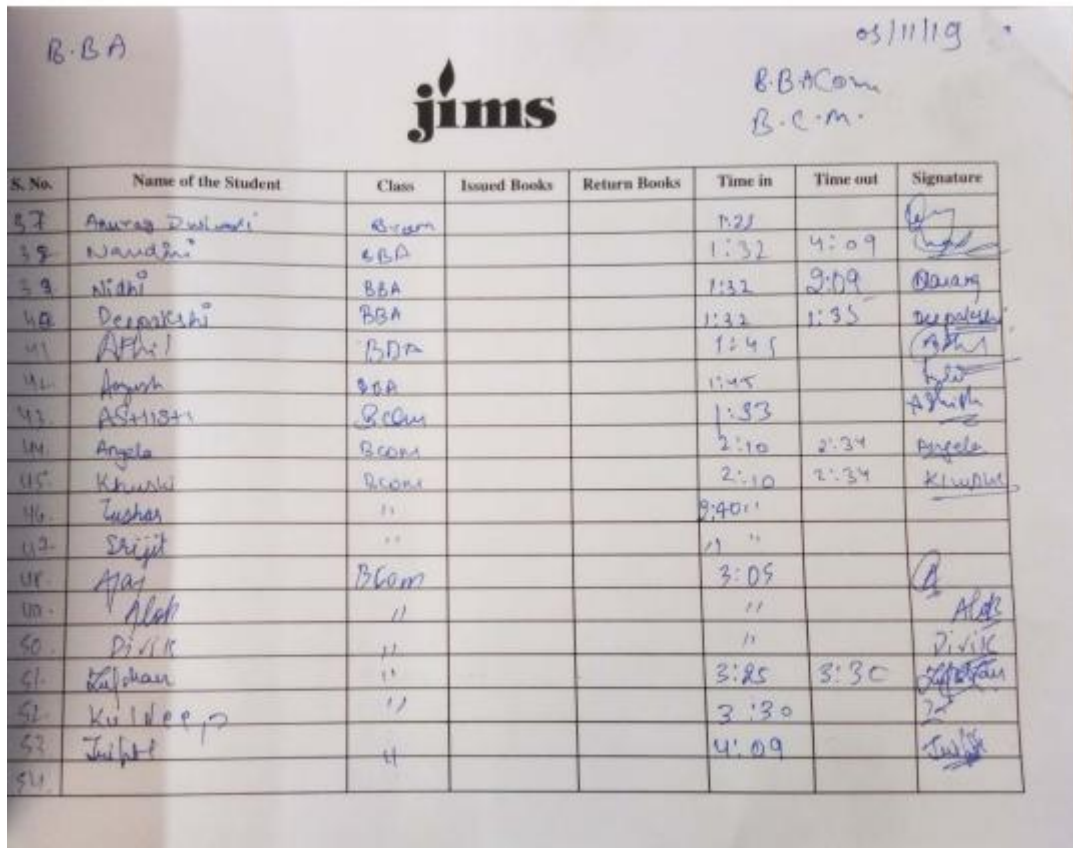 B.BA
05/11/19
B.BACom
B.C.M.
jims
S. No. Name of the Student Class Issued Books Return Books Time in Time out Signature
37 Anurag Bcom
38 Nandhi BBA 1:32 4:09
39 Nidhi BBA 1:32 2:09
40 Deepakshi BBA 1:32 1:35 Deepakshi
41 BBA 1:45
42. BBA 1:45
43. ASHISH Bcom 1:33 Ashish
44. Angela Bcom 2:10 2:34 Angela
45. Khushi Bcom 2:10 2:34 Khushi
46. Tushar " 2:40 "
47. Srijit " " "
48. Ajay BCom 3:05
49. Alok " " Alok
50. Divik " " Divik
51. " 3:25 3:30
52. Kuldeep " 3:30
53 " 4:09
54.